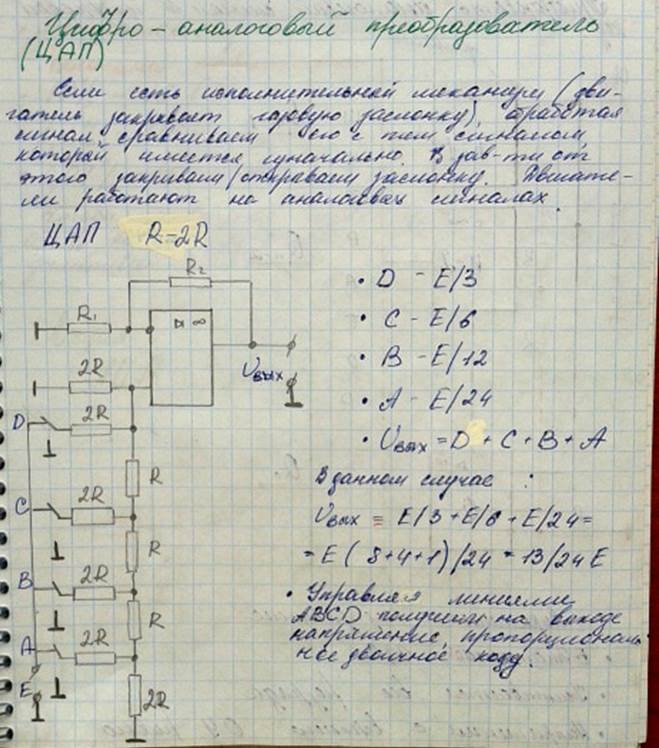 Цифро-аналоговый преобразователь
(ЦАП)
Если есть исполнительный механизм (дви-
гатель закрывает газовую заслонку), обработав
сигнал, сравниваем его с тем сигналом
который имеется изначально. В зав-ти от
этого закрываем/открываем заслонку. Двигате-
ли работают на аналоговых сигналах.
ЦАП R-2R
R2
R1
▷ ∞
Uвых
2R
D 2R
R
C 2R
R
B 2R
R
A 2R
E
2R
• D - E/3
• C - E/6
• B - E/12
• A - E/24
• Uвых = D + C + B + A
В данном случае :
Uвых = E/3 + E/6 + E/24 =
= E (8+4+1)/24 = 13/24 E
• Управляя линиями
ABCD получили на выходе
напряжение, пропорциональ
ное двоичное коду.